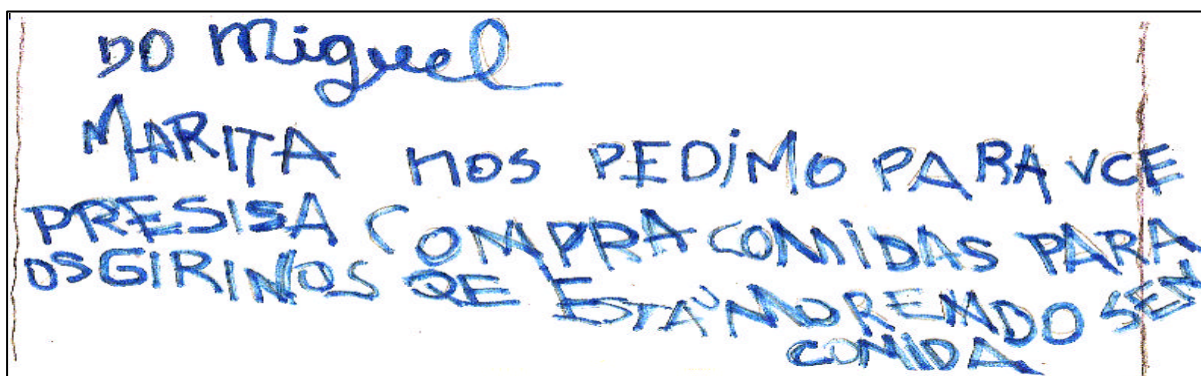 DO Miguel
MARITA NOS PEDIMO PARA VCE
PRESISA COMPRA COMIDAS PARA
OS GIRINOS QE ESTAU MORENDO SEM
COMIDA